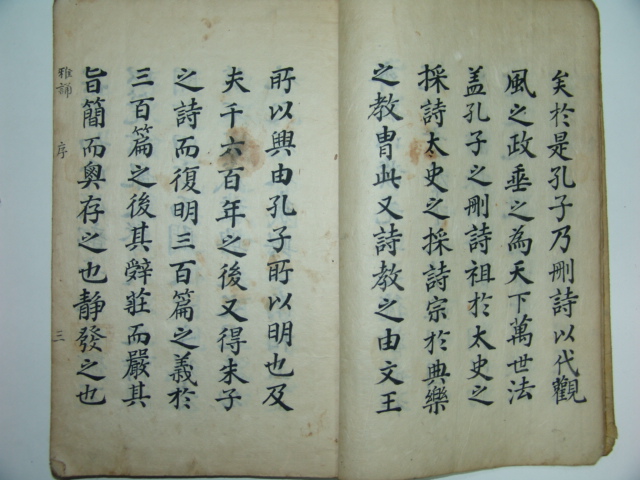 矣於是孔子乃刪詩以代觀
風之政垂之為天下萬世法
盖孔子之刪詩祖於太史之
採詩太史之採詩宗於典樂
之教胄此又詩教之由文王
所以興由孔子所以明也及
夫千六百年之後又得朱子
之詩而復明三百篇之義於
三百篇之後其辭莊而嚴其
旨簡而奧存之也静發之也
雅誦 序 三